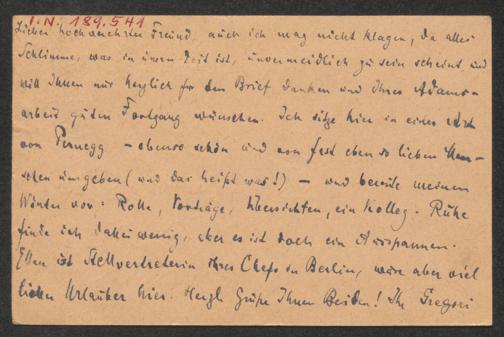 I. N. 189.541
Lieber hochverehrter Freund, auch ich mag nicht klagen, da alles
Schlimme, was in unserer Zeit ist, unvermeidlich zu sein scheint und
will Ihnen nur herzlich für den Brief danken und Ihrer Adams-
arbeit guten Fortgang wünschen. Ich sitze hier in einer Art
von Pernegg – ebenso schön und von fast ebenso lieben Men-
schen umgeben (und das heißt was!) – und bereite meinen
Winter vor: Rolle, Vorträge, Übersichten, ein Kolleg. Ruhe
finde ich dabei wenig, aber es ist doch ein Ausspannen.
Ellen ist Stellvertreterin ihres Chefs in Berlin, wäre aber viel
lieber Urlauber hier. Herzl. Grüße Ihnen Beiden! Ihr Gregori